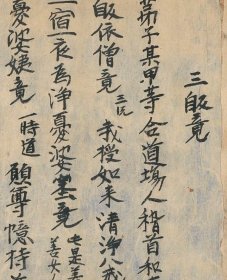 三皈竟
弟子某甲等合道場人稽首和
皈依僧竟 三說 我授如来清淨八戒
一宿一夜為淨憂婆塞竟 善女人
憂婆姨竟 一時道 願尊憶持